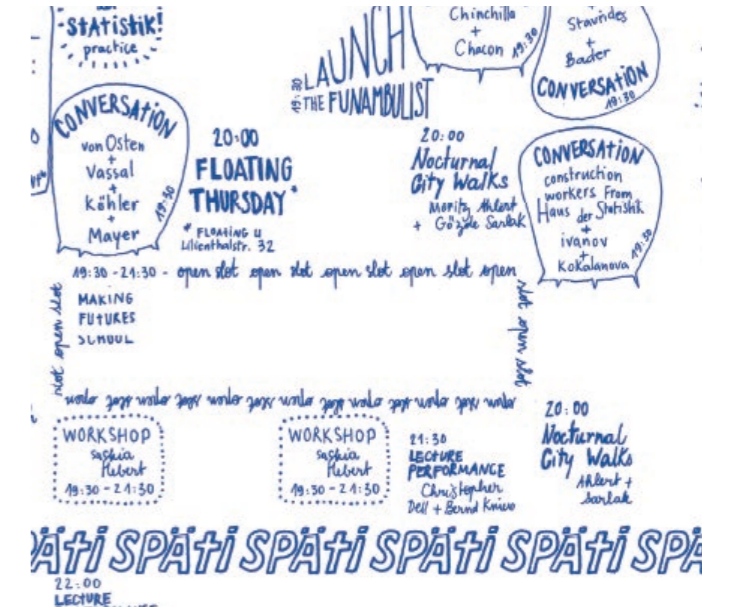 STATISTIK!
practice
LAUNCH
THE FUNAMBULIST
Chinchilla
+
Chacon
19:30
Stavrides
+
Bader
CONVERSATION
19:30
CONVERSATION
von Osten
+
Vassal
+
Köhler
+
Mayer
19:30
20:00
FLOATING
THURSDAY*
* FLOATING U
Lilienthalstr. 32
20:00
Nocturnal
City Walks
Moritz Ahlert
+ Gözde Sarlak
CONVERSATION
construction
workers From
Haus der Statistik
+
ivanov
+
Kokalanova
19:30
19:30 - 21:30 - open slot open slot open slot open slot open
slot open slot
MAKING
FUTURES
SCHOOL
slot open slot
open slot open slot open slot open slot open slot open
WORKSHOP
saskia
Hebert
19:30 - 21:30
WORKSHOP
saskia
Hebert
19:30 - 21:30
21:30
LECTURE
PERFORMANCE
Christopher
Dell + Bernd Kniess
20:00
Nocturnal
City Walks
Ahlert +
Sarlak
PÄTI SPÄTI SPÄTI SPÄTI SPÄTI SPÄ
22:00
LECTURE